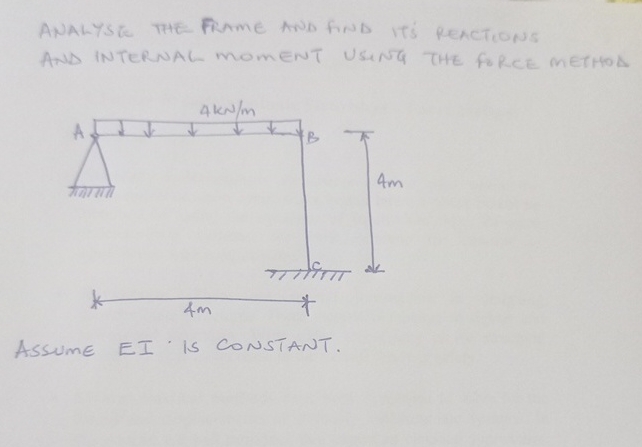 ANALYSE THE FRAME AND FIND IT'S REACTIONS
AND INTERNAL MOMENT USING THE FORCE METHOD
4kN/m
A
B
4m
C
4m
ASSUME EI IS CONSTANT.